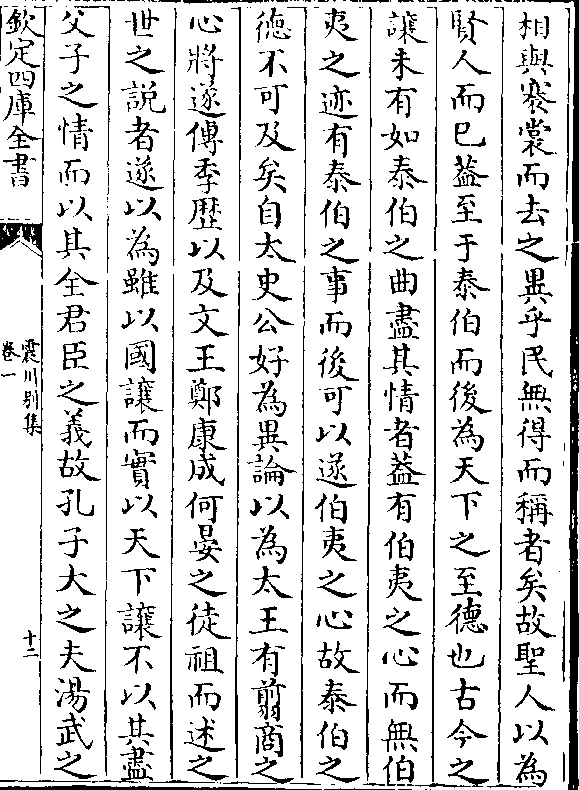 相與褰裳而去之異乎民無得而稱者矣故聖人以為
賢人而已葢至于泰伯而後為天下之至德也古今之
讓未有如泰伯之曲盡其情者葢有伯夷之心而無伯
夷之迹有泰伯之事而後可以遂伯夷之心故泰伯之
德不可及矣自太史公好為異論以為太王有翦商之
心將遂傳季歴以及文王鄭康成何晏之徒祖而述之
世之説者遂以為雖以國讓而實以天下讓不以其盡
父子之情而以其全君臣之義故孔子大之夫湯武之
欽定四庫全書
震川别集
卷一
十二